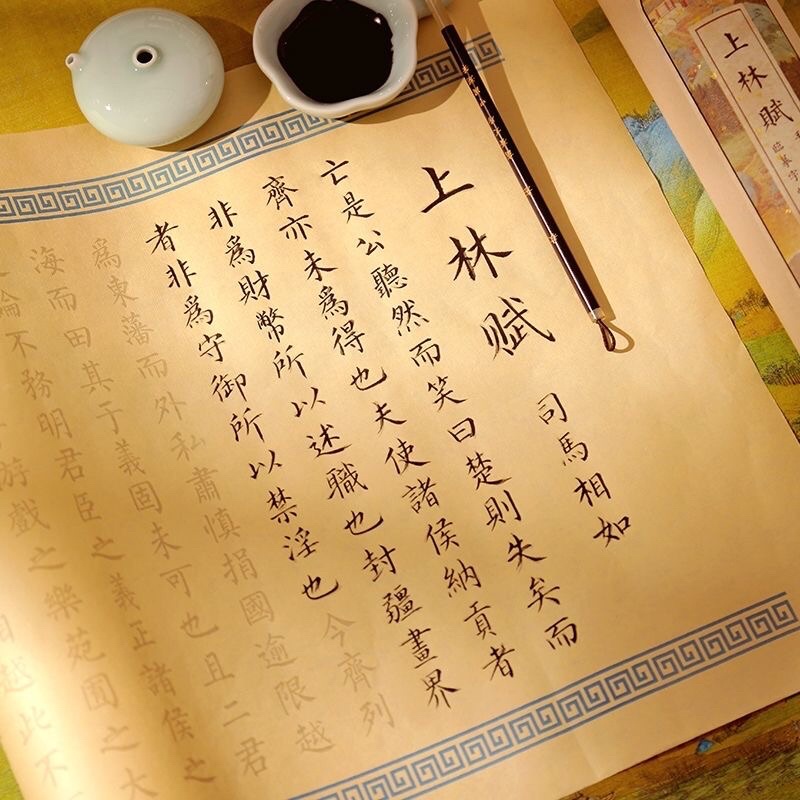 上林賦
臨摹字
上林賦
司馬相如
亡是公聽然而笑曰楚則失矣而
齊亦未爲得也夫使諸侯納貢者
非爲財幣所以述職也封疆畫界
者非爲守御所以禁淫也今齊列
爲東藩而外私肅慎捐國逾限越
海而田其于義固未可也且二君
論不務明君臣之義正諸侯之
游戲之樂苑囿之大
越此不